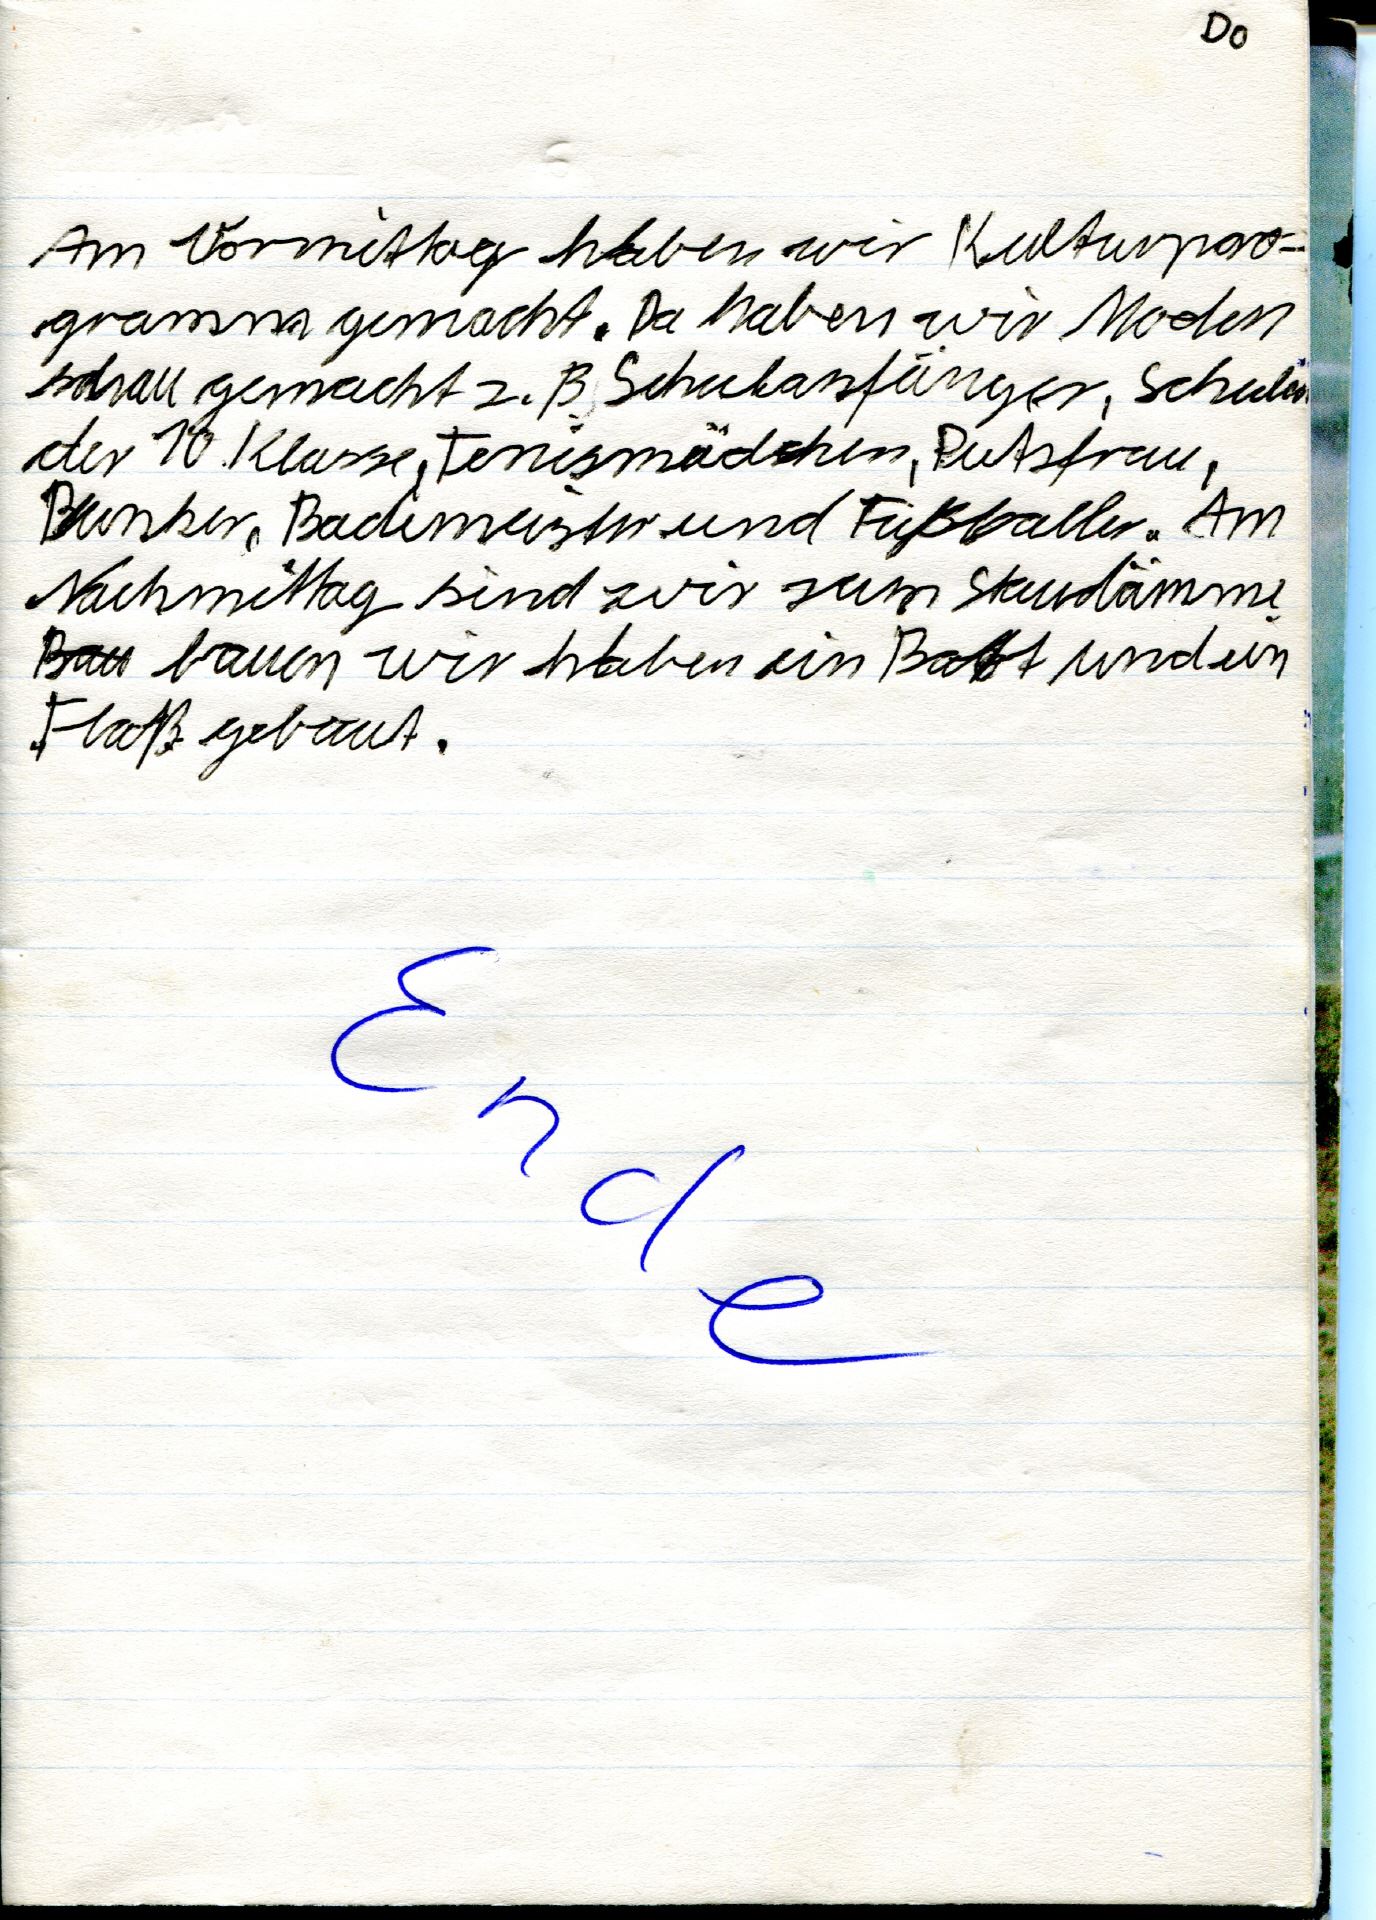 Do
Am Vormittag haben wir Kulturpro-
gramm gemacht. Da haben wir Moden
schau gemacht z.B. Schulanfänger, Schüler
der 10 Klasse, Tenismädchen, Putsfrau,
Bunker, Bademeister und Fußballer. Am
Nachmittag sind wir zum Staudämme
Bau bauen wir haben ein Bott und ein
Floß gebaut.
Ende